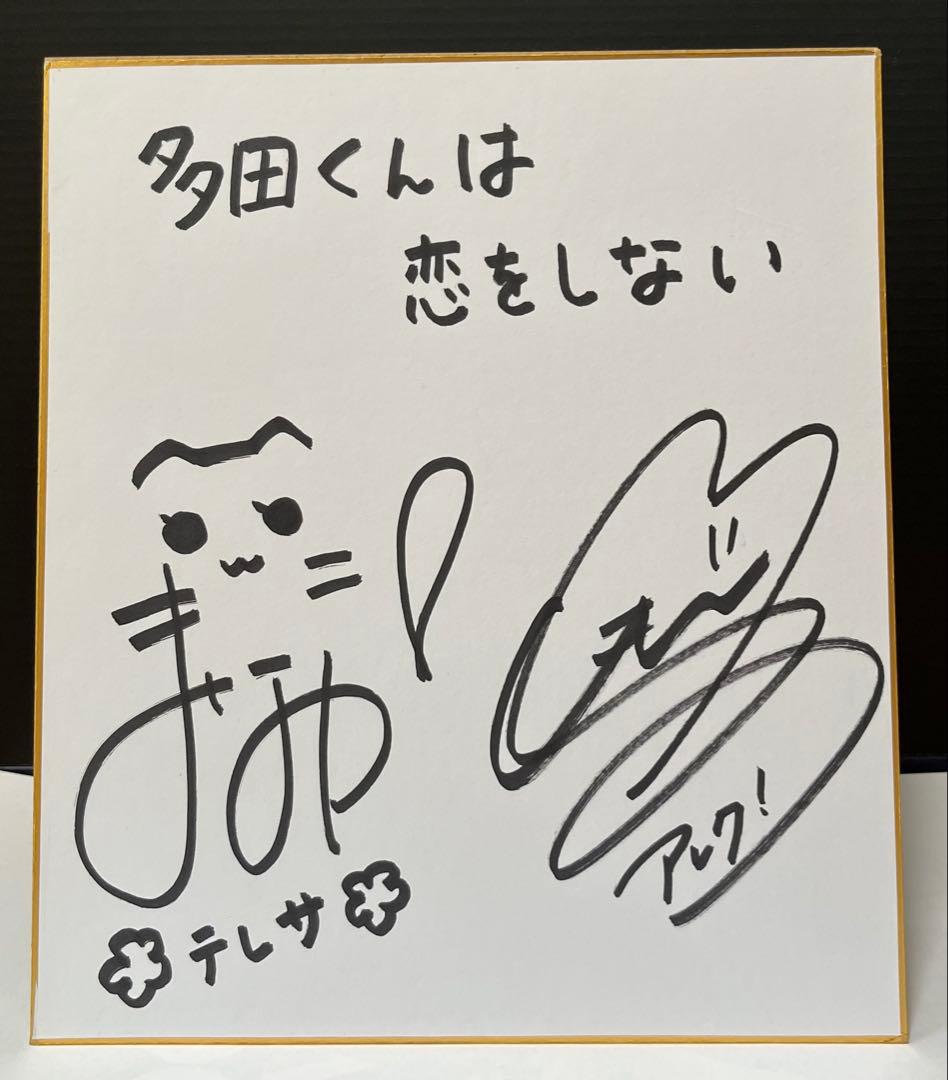 多田くんは
恋をしない
まあや
テレサ
アレク!